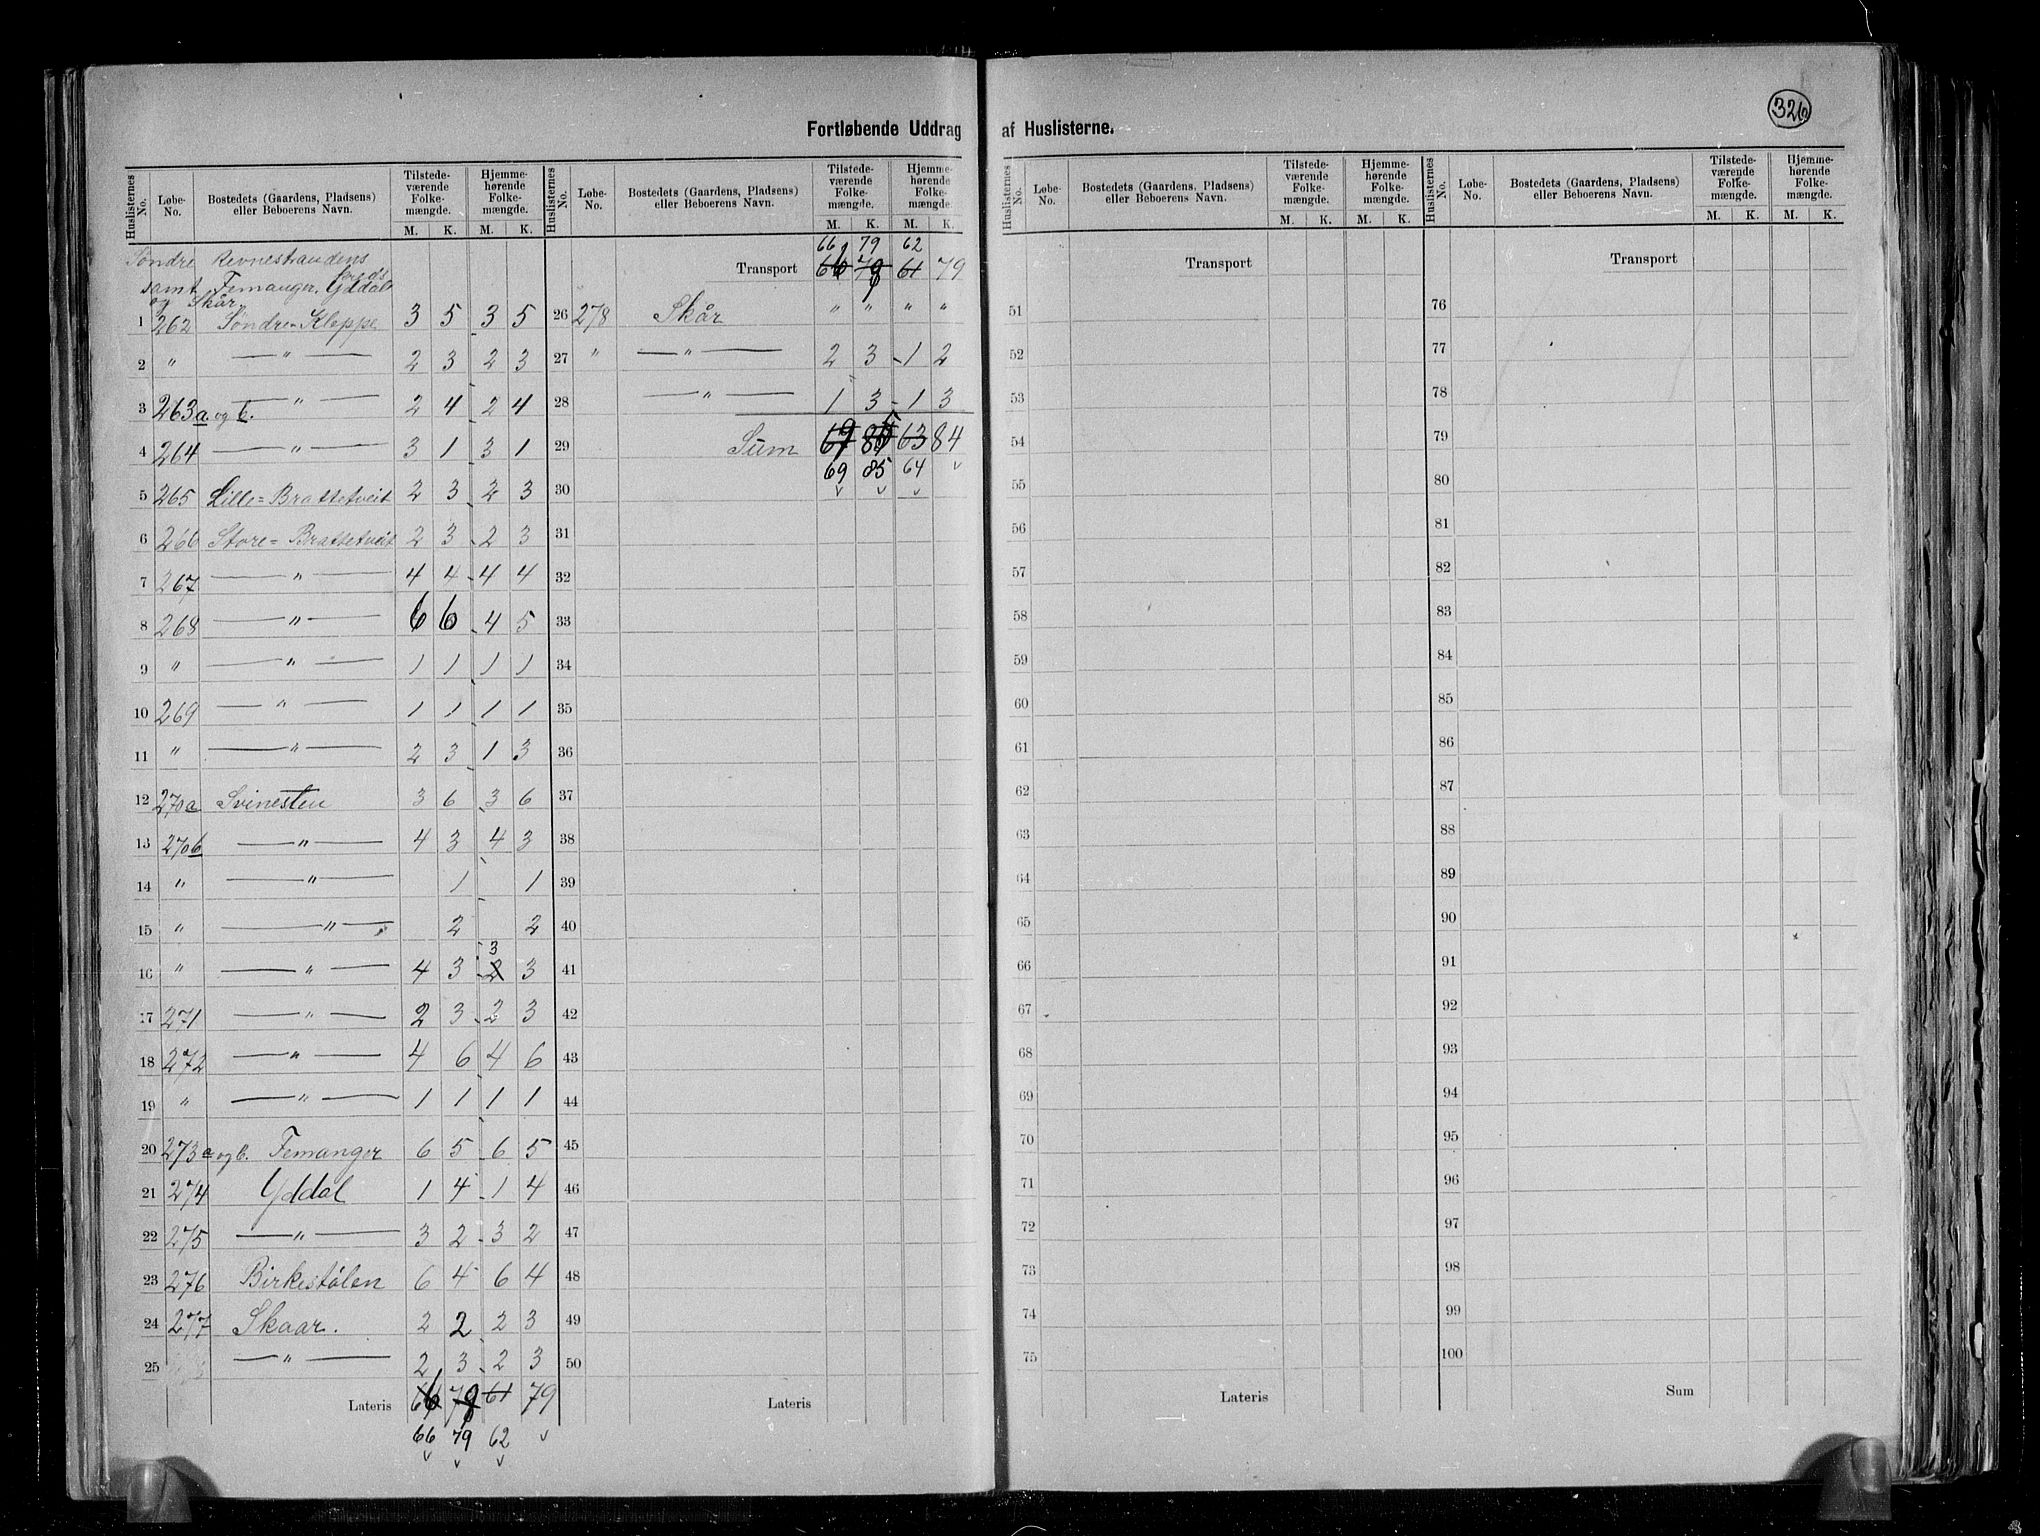 326
Fortløbende Uddrag af Huslisterne.
Huslisternes No. Løbe-No. Bostedets (Gaardens, Pladsens) eller Beboerens Navn. Tilstedeværende Folkemængde. M. K. Hjemmehørende Folkemængde. M. K.
Søndre Revnestrandens
samt Femanger, Yddal
og Skår
1 262 Søndre Kleppe 3 5 3 5
2 " — " — 2 3 2 3
3 263a og b. — " — 2 4 2 4
4 264 — " — 3 1 3 1
5 265 Lille=Brattetveit 2 3 2 3
6 266 Store=Brattetveit 2 3 2 3
7 267 — " — 4 4 4 4
8 268 — " — 6 6 4 5
9 " — " — 1 1 1 1
10 269 — " — 1 1 1 1
11 " — " — 2 3 1 3
12 270a Svinesten 3 6 3 6
13 270b — " — 4 3 4 3
14 " — " — 1 1
15 " — " — 2 2
16 " — " — 4 3 3 3
17 271 — " — 2 3 2 3
18 272 — " — 4 6 4 6
19 " — " — 1 1 1 1
20 273a og b. Femanger 6 5 6 5
21 274 Yddal 1 4 1 4
22 275 — " — 3 2 3 2
23 276 Birkestølen 6 4 6 4
24 277 Skaar. 2 2 2 3
25 — " — 2 3 2 3
Lateris 61 79
66 79 62
Huslisternes No. Løbe-No. Bostedets (Gaardens, Pladsens) eller Beboerens Navn. Tilstedeværende Folkemængde. M. K. Hjemmehørende Folkemængde. M. K.
66 79 62
Transport 61 79
26 278 Skår " " " "
27 " — " — 2 3 1 2
28 — " — 1 3 1 3
29 Sum 63 84
30 69 85 64
31
32
33
34
35
36
37
38
39
40
41
42
43
44
45
46
47
48
49
50
Lateris
Huslisternes No. Løbe-No. Bostedets (Gaardens, Pladsens) eller Beboerens Navn. Tilstedeværende Folkemængde. M. K. Hjemmehørende Folkemængde. M. K.
Transport
51
52
53
54
55
56
57
58
59
60
61
62
63
64
65
66
67
68
69
70
71
72
73
74
75
Lateris
Huslisternes No. Løbe-No. Bostedets (Gaardens, Pladsens) eller Beboerens Navn. Tilstedeværende Folkemængde. M. K. Hjemmehørende Folkemængde. M. K.
Transport
76
77
78
79
80
81
82
83
84
85
86
87
88
89
90
91
92
93
94
95
96
97
98
99
100
Sum